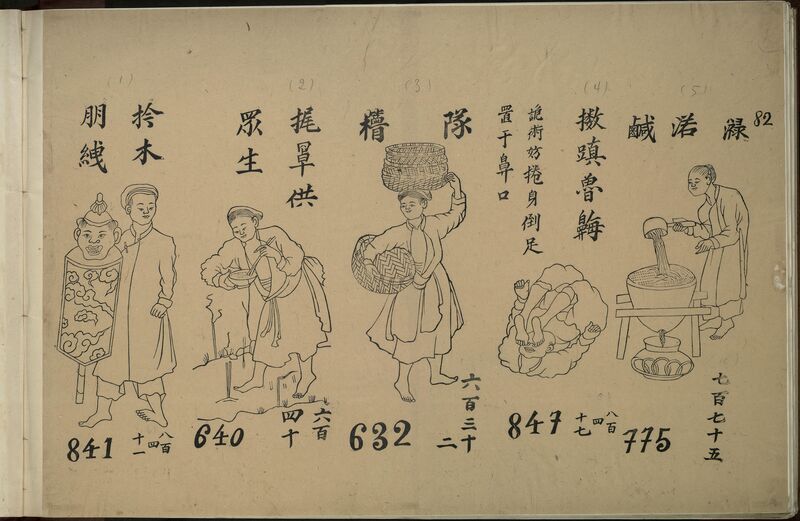 (1)
木
朋絏
841
八百
四
十一
(2)
供
眾生
640
六百
四十
(3)
隊
632
六百三十
二
(4)
蹎魯
詭術妨捲身倒足
置于鼻口
847
八百
四
十七
(5)
82
渌 渃 鹹
775
七百七十五